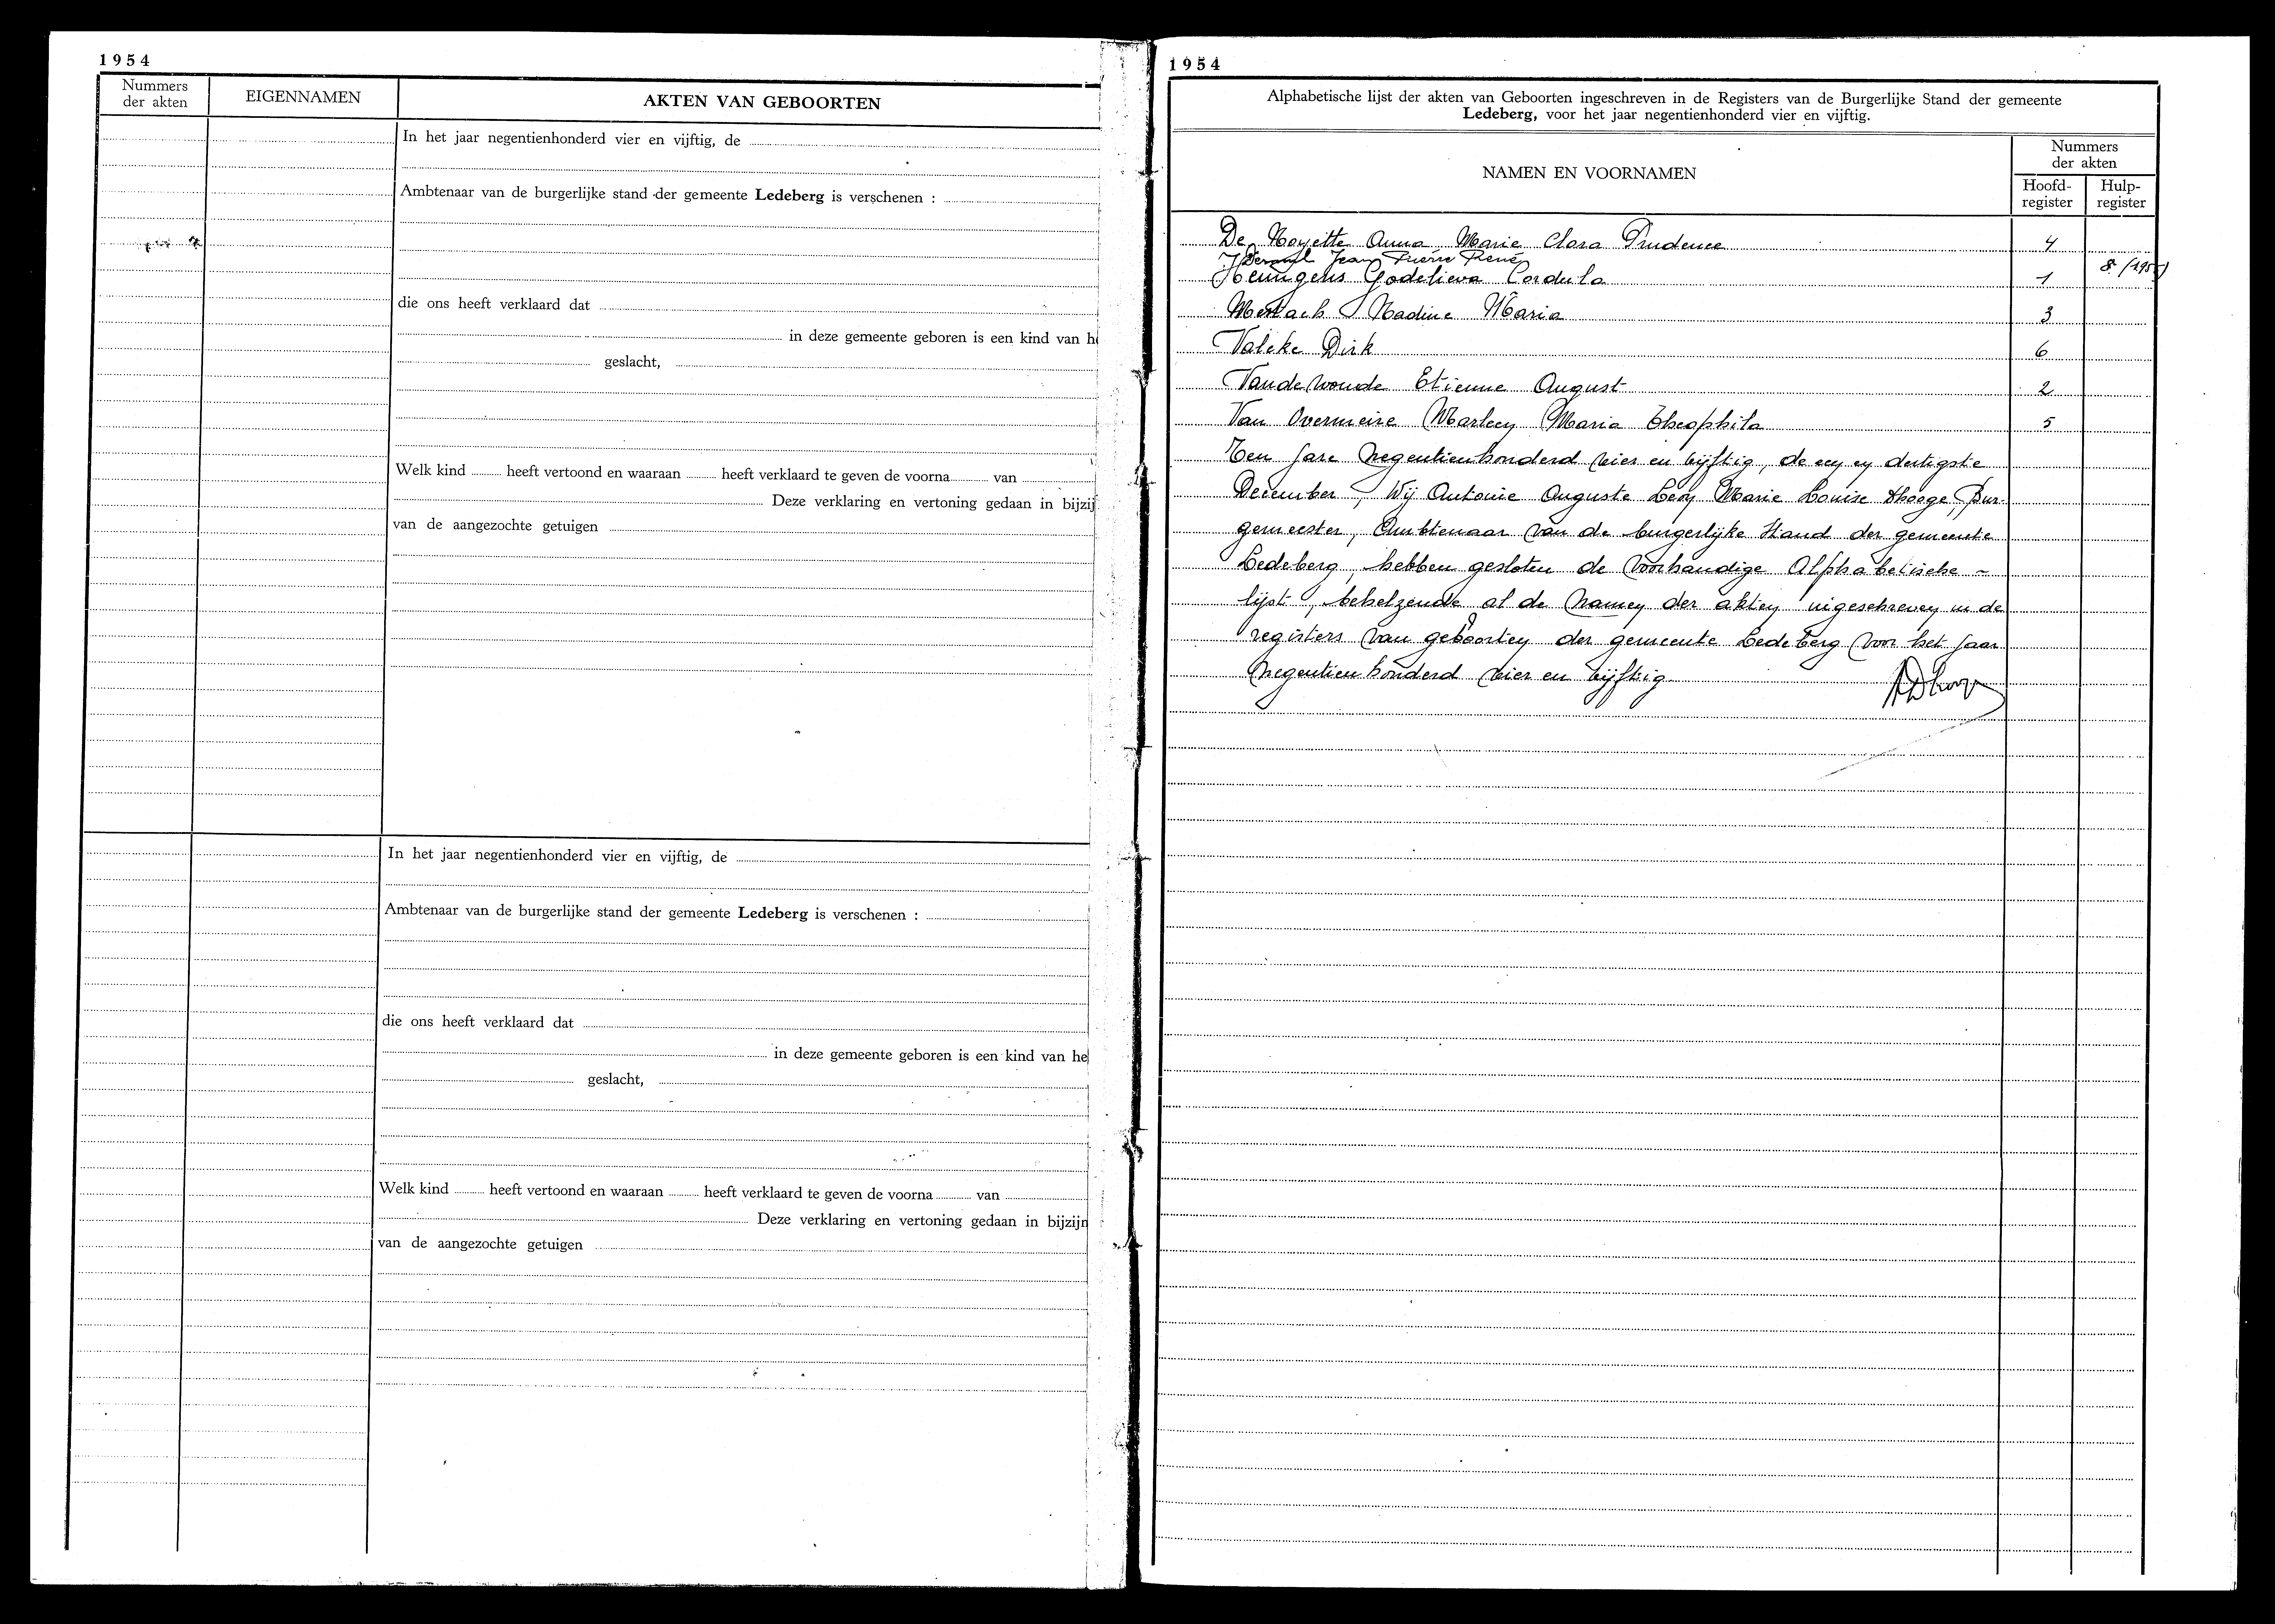 1954
Nummers
der akten
EIGENNAMEN
AKTEN VAN GEBOORTEN
In het jaar negentienhonderd vier en vijftig, de
Ambtenaar van de burgerlijke stand der gemeente Ledeberg is verschenen :
die ons heeft verklaard dat
in deze gemeente geboren is een kind van he
geslacht,
Welk kind heeft vertoond en waaraan heeft verklaard te geven de voorna van
Deze verklaring en vertoning gedaan in bijzij
van de aangezochte getuigen
In het jaar negentienhonderd vier en vijftig, de
Ambtenaar van de burgerlijke stand der gemeente Ledeberg is verschenen :
die ons heeft verklaard dat
in deze gemeente geboren is een kind van he
geslacht,
Welk kind heeft vertoond en waaraan heeft verklaard te geven de voorna van
Deze verklaring en vertoning gedaan in bijzijn
van de aangezochte getuigen
1954
Alphabetische lijst der akten van Geboorten ingeschreven in de Registers van de Burgerlijke Stand der gemeente
Ledeberg, voor het jaar negentienhonderd vier en vijftig.
NAMEN EN VOORNAMEN
Nummers
der akten
Hoofd-
register
Hulp-
register
De Noyette Anna Marie Clara Prudence 4
Jean Pierre René 8 (1955)
Godelieva Cordula 1
Nadine Maria 3
Valcke Dirk 6
Vandewoude Etienne August 2
Van Overmeire Marleen Maria Theophila 5
Ten jare negentienhonderd vier en vijftig, de een en dertigste
December, Wij Antonie Auguste Leon Marie Louise Dhooge, Bur-
gemeester, Ambtenaar van de burgerlijke stand der gemeente
Ledeberg, hebben gesloten de voorhandige Alphabetische -
lijst, behelzende al de namen der akten ingeschreven in de
registers van geboorten der gemeente Ledeberg voor het jaar
negentienhonderd vier en vijftig